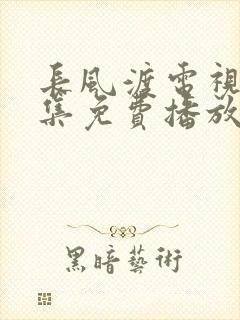 長風渡電視
集免費播放
黑暗藝術